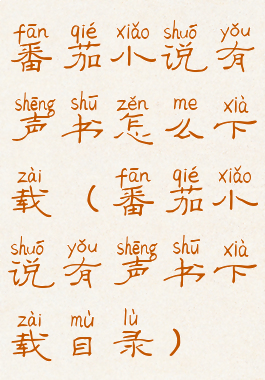 fān qié xiǎo shuō yǒu
番茄小说有
shēng shū zěn me xià
声书怎么下
zài fān qié xiǎo
载（番茄小
shuō yǒu shēng shū xià
说有声书下
zài mù lù
载目录）